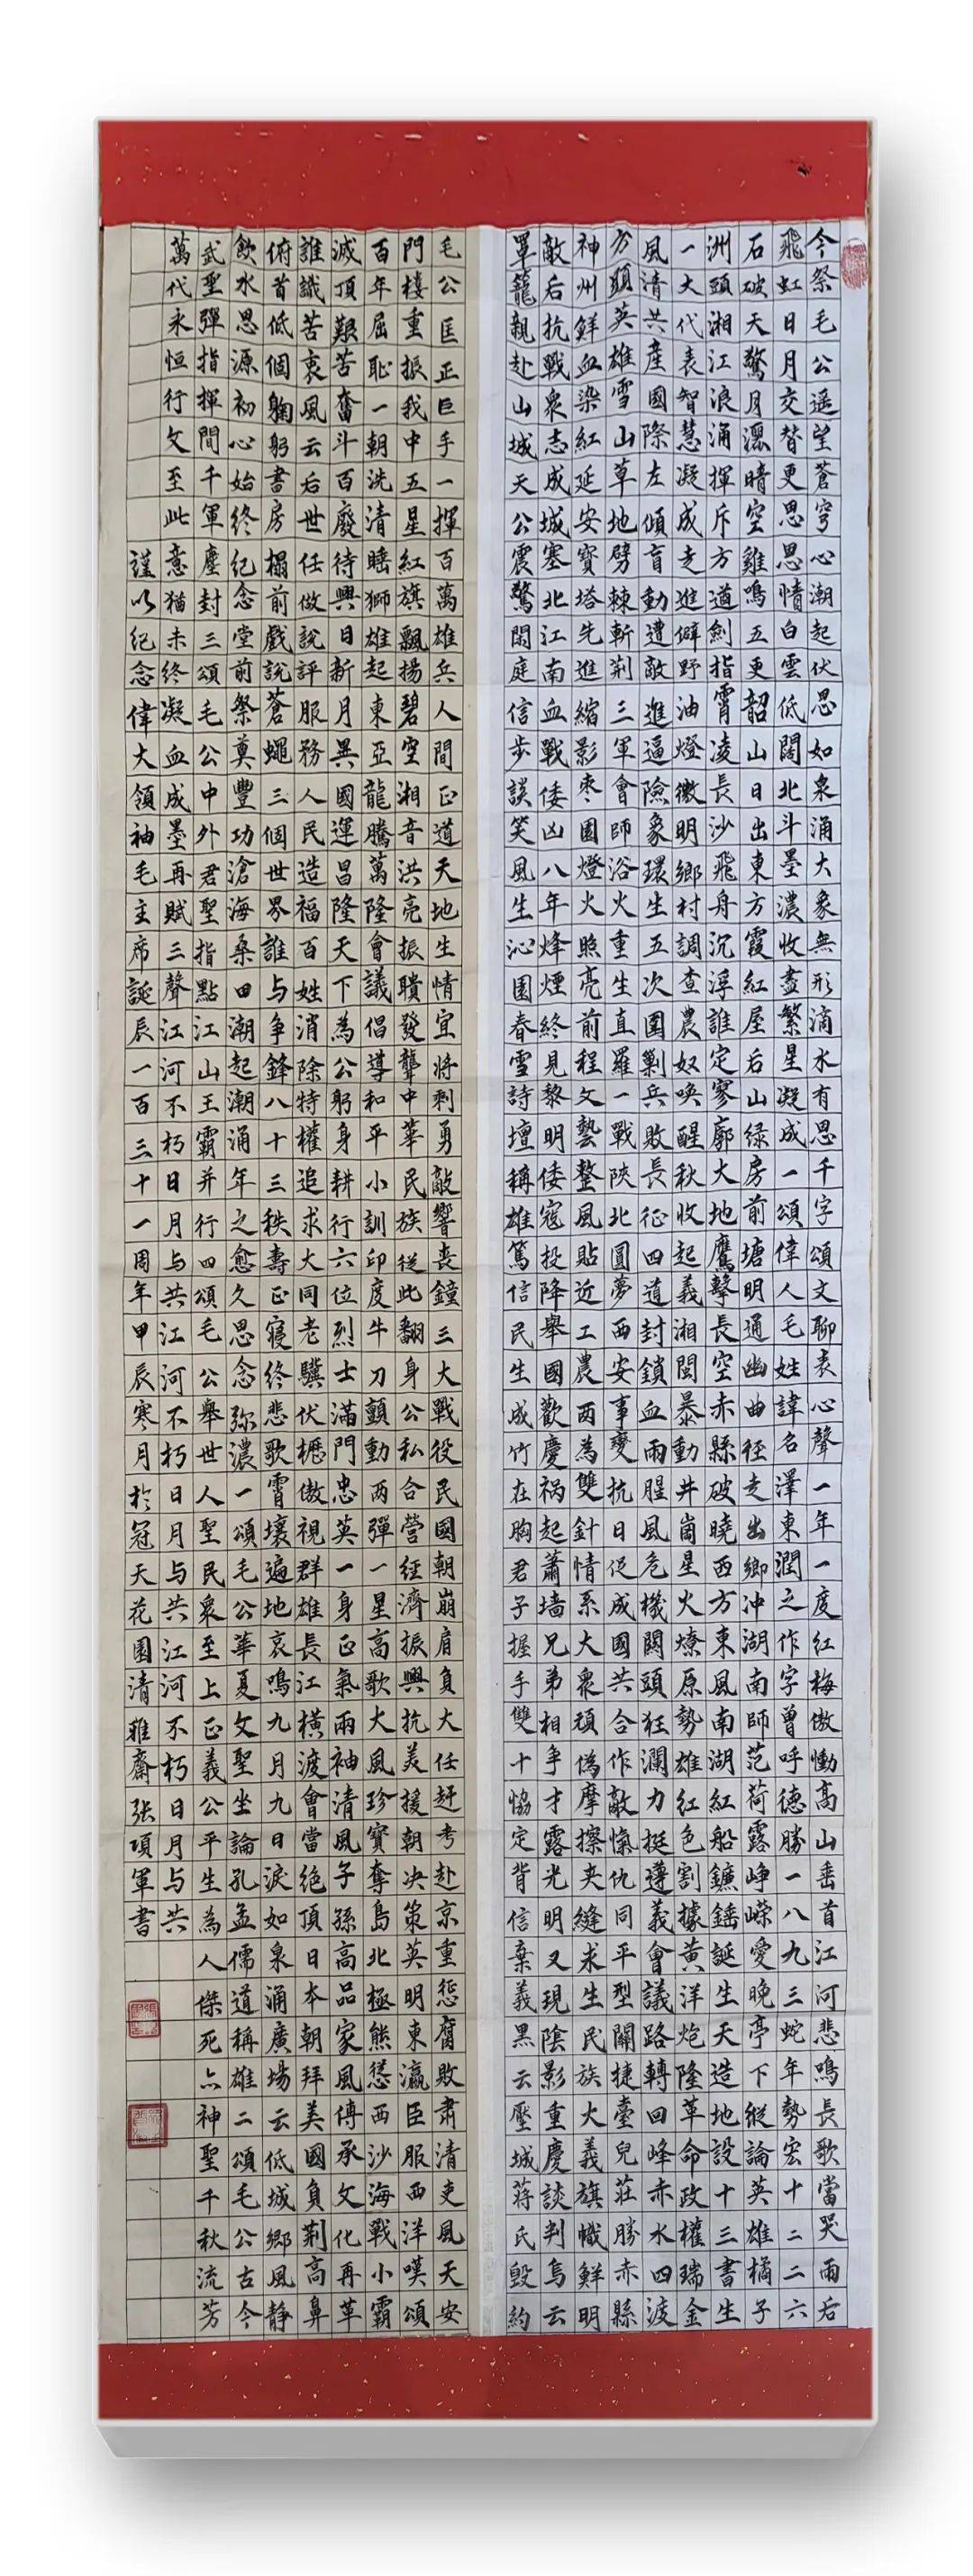 今祭毛公遥望蒼穹心潮起伏思如泉涌大象無形滴水有思千字頌文聊表心聲一年一度紅梅傲慟高山垂首江河悲鳴長歌當哭雨后
飛虹日月交替更思思情白雲低闊北斗墨濃收盡繁星凝成一頌偉人毛姓諱名澤東潤之作字曾呼德勝一八九三蛇年勢宏十二二六
石破天驚月濕暗空雞鳴五更韶山日出東方霞紅屋后山緑房前塘明通幽曲徑走出鄉冲湖南師范荷露峥嶸愛晚亭下縱論英雄橘子
洲頭湘江浪涌揮斥方遒劍指霄凌長沙飛舟沉浮誰定寥廓大地鷹擊長空赤縣破曉西方東風南湖紅船鐮錘誕生天造地設十三書生
一大代表智慧凝成走進僻野油燈微明鄉村調查農奴唤醒秋收起義湘閩暴動井崗星火燎原勢雄紅色割據黄洋炮隆革命政權瑞金
風清共産國際左傾盲動遭敵進逼險象環生五次圍剿兵敗長征四道封鎖血雨腥風危機關頭狂瀾力挺遵義會議路轉回峰赤水四渡
方顯英雄雪山草地劈棘斬荆三軍會師浴火重生直羅一戰陝北圓夢西安事變抗日促成國共合作敵愾仇同平型關捷臺兒莊勝赤縣
神州鮮血染紅延安寶塔先進縮影棗園燈火照亮前程文藝整風貼近工農兩為雙針情系大衆頑偽摩擦夾縫求生民族大義旗幟鮮明
敵后抗戰衆志成城塞北江南血戰倭凶八年烽煙終見黎明倭寇投降舉國歡慶祸起蕭墙兄弟相争才露光明又現陰影重慶談判烏云
罩籠親赴山城天公震驚閑庭信步談笑風生沁園春雪詩壇稱雄篤信民生成竹在胸君子握手雙十協定背信棄義黑云壓城蔣氏毁約
毛公匡正巨手一揮百萬雄兵人間正道天地生情宜將剩勇敲響喪鐘三大戰役民國朝崩肩負大任赶考赴京重懲腐敗肅清吏風天安
門樓重振我中五星紅旗飄揚碧空湘音洪亮振聵發聾中華民族從此翻身公私合營經濟振興抗美援朝决策英明東瀛臣服西洋嘆頌
百年屈恥一朝洗清睡獅雄起東亞龍騰萬隆會議倡導和平小訓印度牛刀顫動兩彈一星高歌大風珍寶奪島北極熊慫西沙海戰小霸
滅頂艱苦奮斗百廢待興日新月異國運昌隆天下為公躬身耕行六位烈士滿門忠英一身正氣兩袖清風子孫高品家風傳承文化再革
誰識苦衷風云后世任做説評服務人民造福百姓消除特權追求大同老驥伏櫪傲視群雄長江横渡會當絕頂日本朝拜美國負荆高鼻
俯首低個鞠躬書房榻前戲説蒼蠅三個世界誰与争鋒八十三秩壽正寝終悲歌霄壤遍地哀鳴九月九日淚如泉涌廣場云低城鄉風静
飲水思源初心始終紀念堂前祭奠豐功滄海桑田潮起潮涌年之愈久思念弥濃一頌毛公華夏文聖坐論孔孟儒道稱雄二頌毛公古今
武聖彈指揮間千軍塵封三頌毛公中外君聖指點江山王霸并行四頌毛公舉世人聖民衆至上正義公平生為人傑死亦神聖千秋流芳
萬代永恒行文至此意猶未終凝血成墨再賦三聲江河不朽日月与共江河不朽日月与共江河不朽日月与共
謹以紀念偉大領袖毛主席誕辰一百三十一周年甲辰寒月於冠天花園清雅齋张項軍書